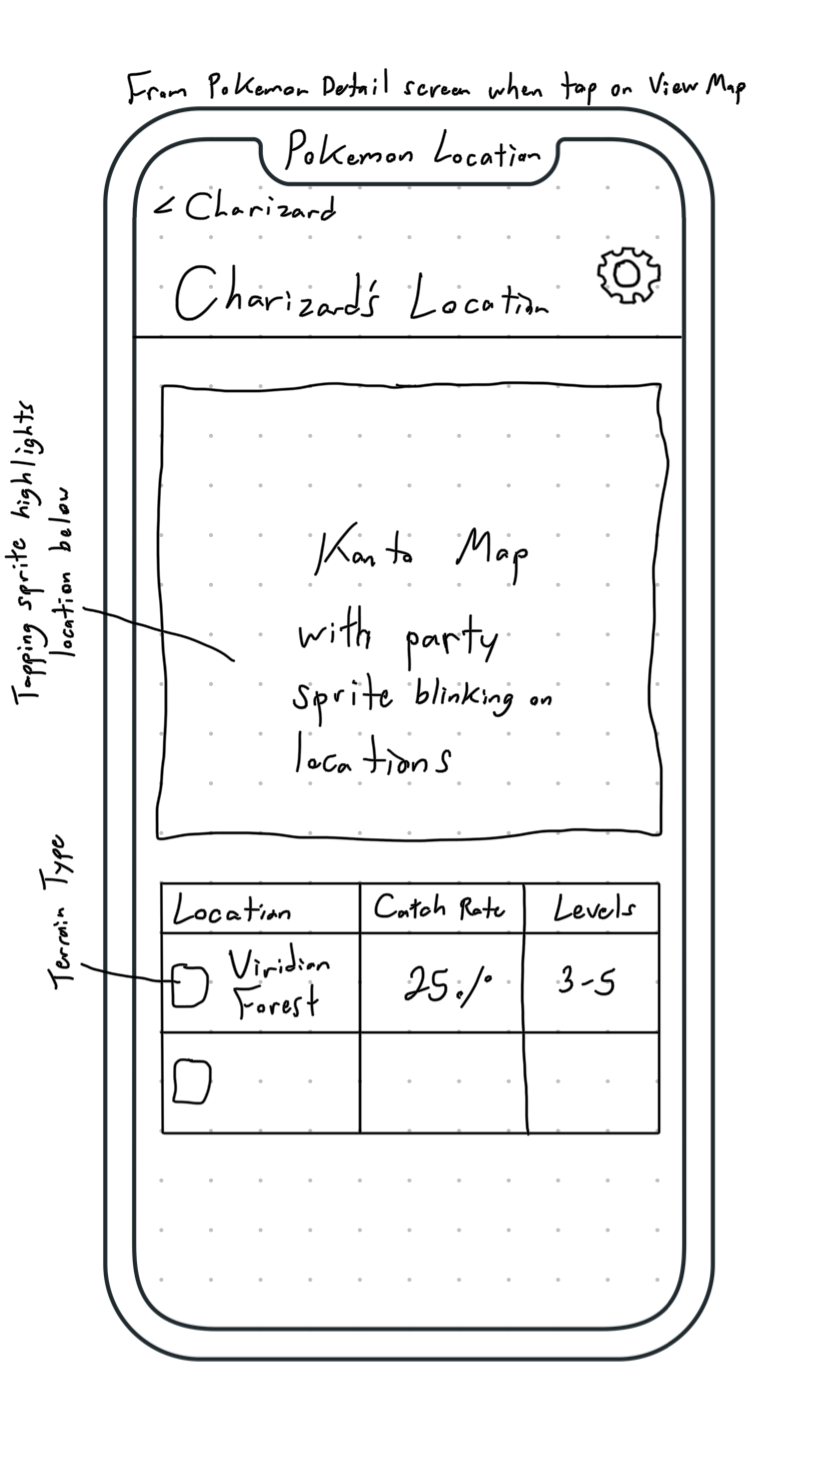 From Pokemon Detail screen when tap on View Map
Pokemon Location
< Charizard
Charizard's Location
Tapping sprite highlights
location below
Kanto Map
with party
sprite blinking on
locations
Terrain Type
Location
Catch Rate
Levels
Viridian
Forest
25%
3-5